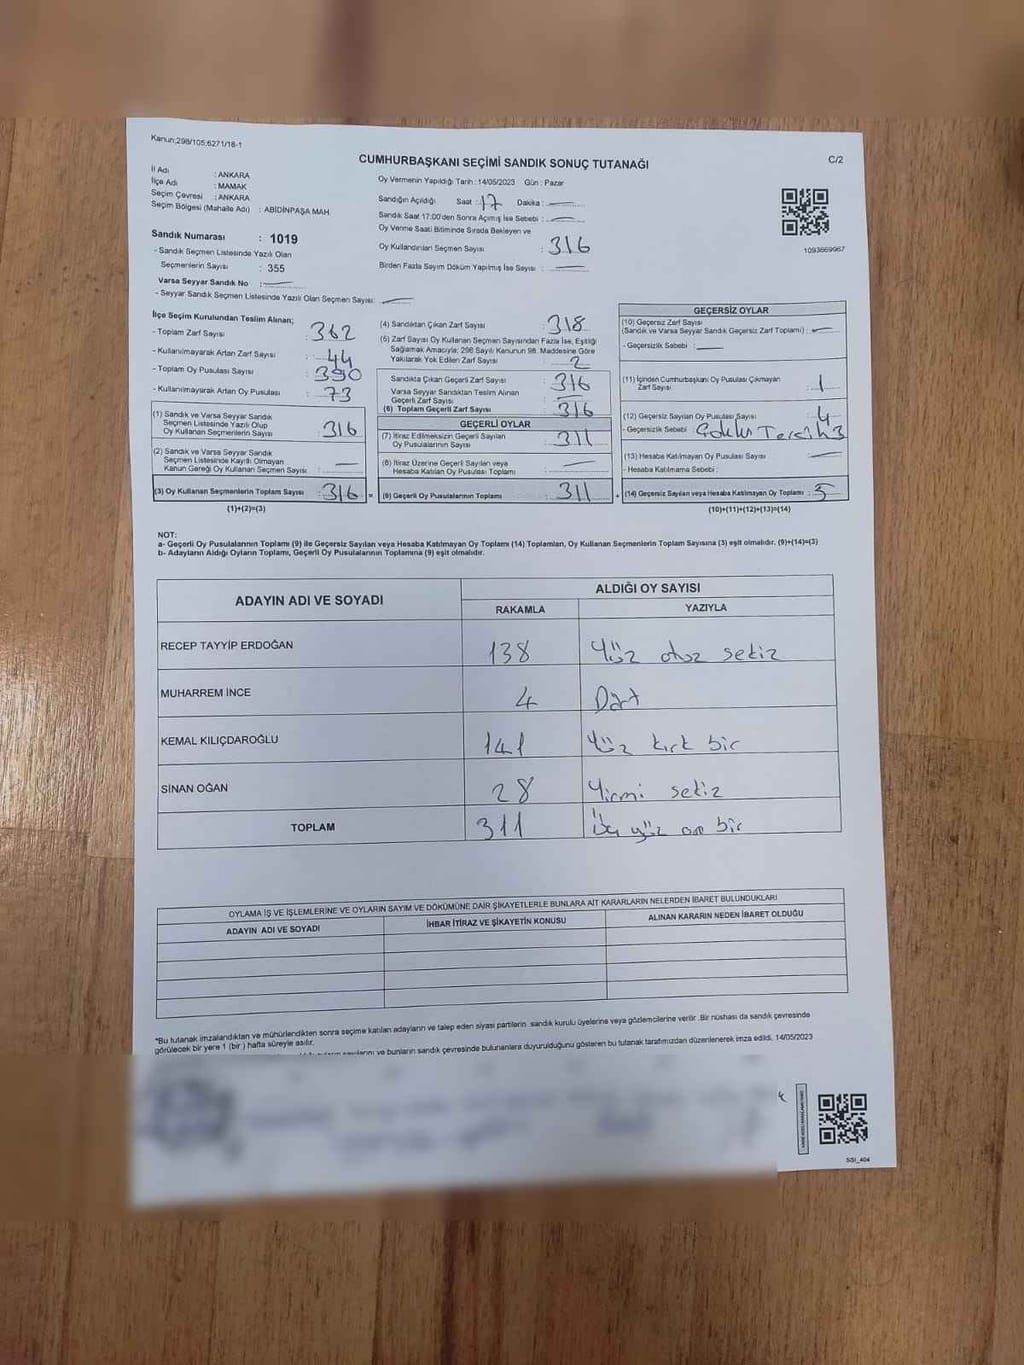 Kanun;298/105;6271/18-1
CUMHURBAŞKANI SEÇİMİ SANDIK SONUÇ TUTANAĞI
C/2
İl Adı : ANKARA
İlçe Adı : MAMAK
Seçim Çevresi : ANKARA
Seçim Bölgesi (Mahalle Adı) : ABİDİNPAŞA MAH.
Oy Vermenin Yapıldığı Tarih : 14/05/2023 Gün : Pazar
Sandığın Açıldığı Saat : 17 Dakika : —
Sandık Saat 17:00'den Sonra Açılmış İse Sebebi : —
Oy Verme Saati Bitiminde Sırada Bekleyen ve
Oy Kullandırılan Seçmen Sayısı : 316
Birden Fazla Sayım Döküm Yapılmış İse Sayısı : —
1093669967
Sandık Numarası : 1019
- Sandık Seçmen Listesinde Yazılı Olan
Seçmenlerin Sayısı : 355
Varsa Seyyar Sandık No : —
- Seyyar Sandık Seçmen Listesinde Yazılı Olan Seçmen Sayısı: —
İlçe Seçim Kurulundan Teslim Alınan;
- Toplam Zarf Sayısı : 362
- Kullanılmayarak Artan Zarf Sayısı : 44
- Toplam Oy Pusulası Sayısı : 390
- Kullanılmayarak Artan Oy Pusulası : 73
(1) Sandık ve Varsa Seyyar Sandık
Seçmen Listesinde Yazılı Olup
Oy Kullanan Seçmenlerin Sayısı : 316
(2) Sandık ve Varsa Seyyar Sandık
Seçmen Listesinde Kayıtlı Olmayan
Kanun Gereği Oy Kullanan Seçmen Sayısı : —
(3) Oy Kullanan Seçmenlerin Toplam Sayısı : 316 =
(1)+(2)=(3)
(4) Sandıktan Çıkan Zarf Sayısı : 318
(5) Zarf Sayısı Oy Kullanan Seçmen Sayısından Fazla İse, Eşitliği
Sağlamak Amacıyla; 298 Sayılı Kanunun 98. Maddesine Göre
Yakılarak Yok Edilen Zarf Sayısı : 2
Sandıkta Çıkan Geçerli Zarf Sayısı : 316
Varsa Seyyar Sandıktan Teslim Alınan
Geçerli Zarf Sayısı : —
(6) Toplam Geçerli Zarf Sayısı : 316
GEÇERLİ OYLAR
(7) İtiraz Edilmeksizin Geçerli Sayılan
Oy Pusulalarının Sayısı : 311
(8) İtiraz Üzerine Geçerli Sayılan veya
Hesaba Katılan Oy Pusulası Toplamı : —
(9) Geçerli Oy Pusulalarının Toplamı : 311 +
GEÇERSİZ OYLAR
(10) Geçersiz Zarf Sayısı
(Sandık ve Varsa Seyyar Sandık Geçersiz Zarf Toplamı) : —
- Geçersizlik Sebebi : —
(11) İçinden Cumhurbaşkanı Oy Pusulası Çıkmayan
Zarf Sayısı : 1
(12) Geçersiz Sayılan Oy Pusulası Sayısı : 4
- Geçersizlik Sebebi :
(13) Hesaba Katılmayan Oy Pusulası Sayısı : —
- Hesaba Katılmama Sebebi :
(14) Geçersiz Sayılan veya Hesaba Katılmayan Oy Toplamı : 5
(10)+(11)+(12)+(13)=(14)
NOT:
a- Geçerli Oy Pusulalarının Toplamı (9) ile Geçersiz Sayılan veya Hesaba Katılmayan Oy Toplamı (14) Toplamları, Oy Kullanan Seçmenlerin Toplam Sayısına (3) eşit olmalıdır. (9)+(14)=(3)
b- Adayların Aldığı Oyların Toplamı, Geçerli Oy Pusulalarının Toplamına (9) eşit olmalıdır.
ADAYIN ADI VE SOYADI
ALDIĞI OY SAYISI
RAKAMLA YAZIYLA
RECEP TAYYİP ERDOĞAN 138 Yüz otuz sekiz
MUHARREM İNCE 4 Dört
KEMAL KILIÇDAROĞLU 141 Yüz kırk bir
SİNAN OĞAN 28 Yirmi sekiz
TOPLAM 311 Üç yüz on bir
OYLAMA İŞ VE İŞLEMLERİNE VE OYLARIN SAYIM VE DÖKÜMÜNE DAİR ŞİKAYETLERLE BUNLARA AİT KARARLARIN NELERDEN İBARET BULUNDUKLARI
ADAYIN ADI VE SOYADI İHBAR İTİRAZ VE ŞİKAYETİN KONUSU ALINAN KARARIN NEDEN İBARET OLDUĞU
*Bu tutanak imzalandıktan ve mühürlendikten sonra seçime katılan adayların ve talep eden siyasi partilerin sandık kurulu üyelerine veya gözlemcilerine verilir. Bir nüshası da sandık çevresinde
görülecek bir yere 1 (bir) hafta süreyle asılır.
ve bunların sandık çevresinde bulunanlara duyurulduğunu gösteren bu tutanak tarafımızdan düzenlenerek imza edildi. 14/05/2023
SSI_404